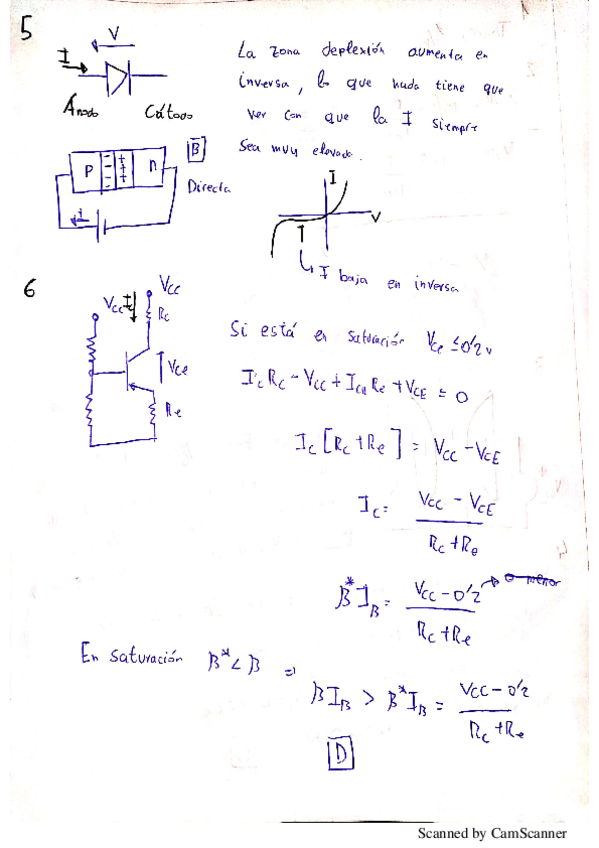 5
V
I
Ánodo Cátodo
P n
B
Directa
i
La zona deplexión aumenta en
inversa, lo que nada tiene que
ver con que la I siempre
sea muy elevada.
I
V
I baja en inversa
6
Vcc
Vcc I
Rc
Vce
Re
Si está en saturación Vce ≤ 0'2v
IcRc - Vcc + IcRe + VCE = 0
Ic [Rc + Re] = Vcc - VCE
Ic = Vcc - VCE
Rc + Re
β*IB = Vcc - 0'2 → o menor
Rc + Re
En saturación β* < β ⇒
βIB > β*IB = Vcc - 0'2
Rc + Re
D
Scanned by CamScanner